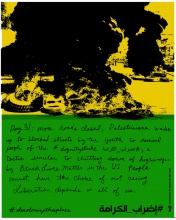 Day 31: more roads closed, Palestinians wake
up to blocked streets by the youth, to remind
people of the # dignitystrike
tactic similar to shutting down of highways
by Black Lives Matter in the US. People
cannot have the choice of not caring.
Liberation depends on all of us.
#إضراب_الكرامة